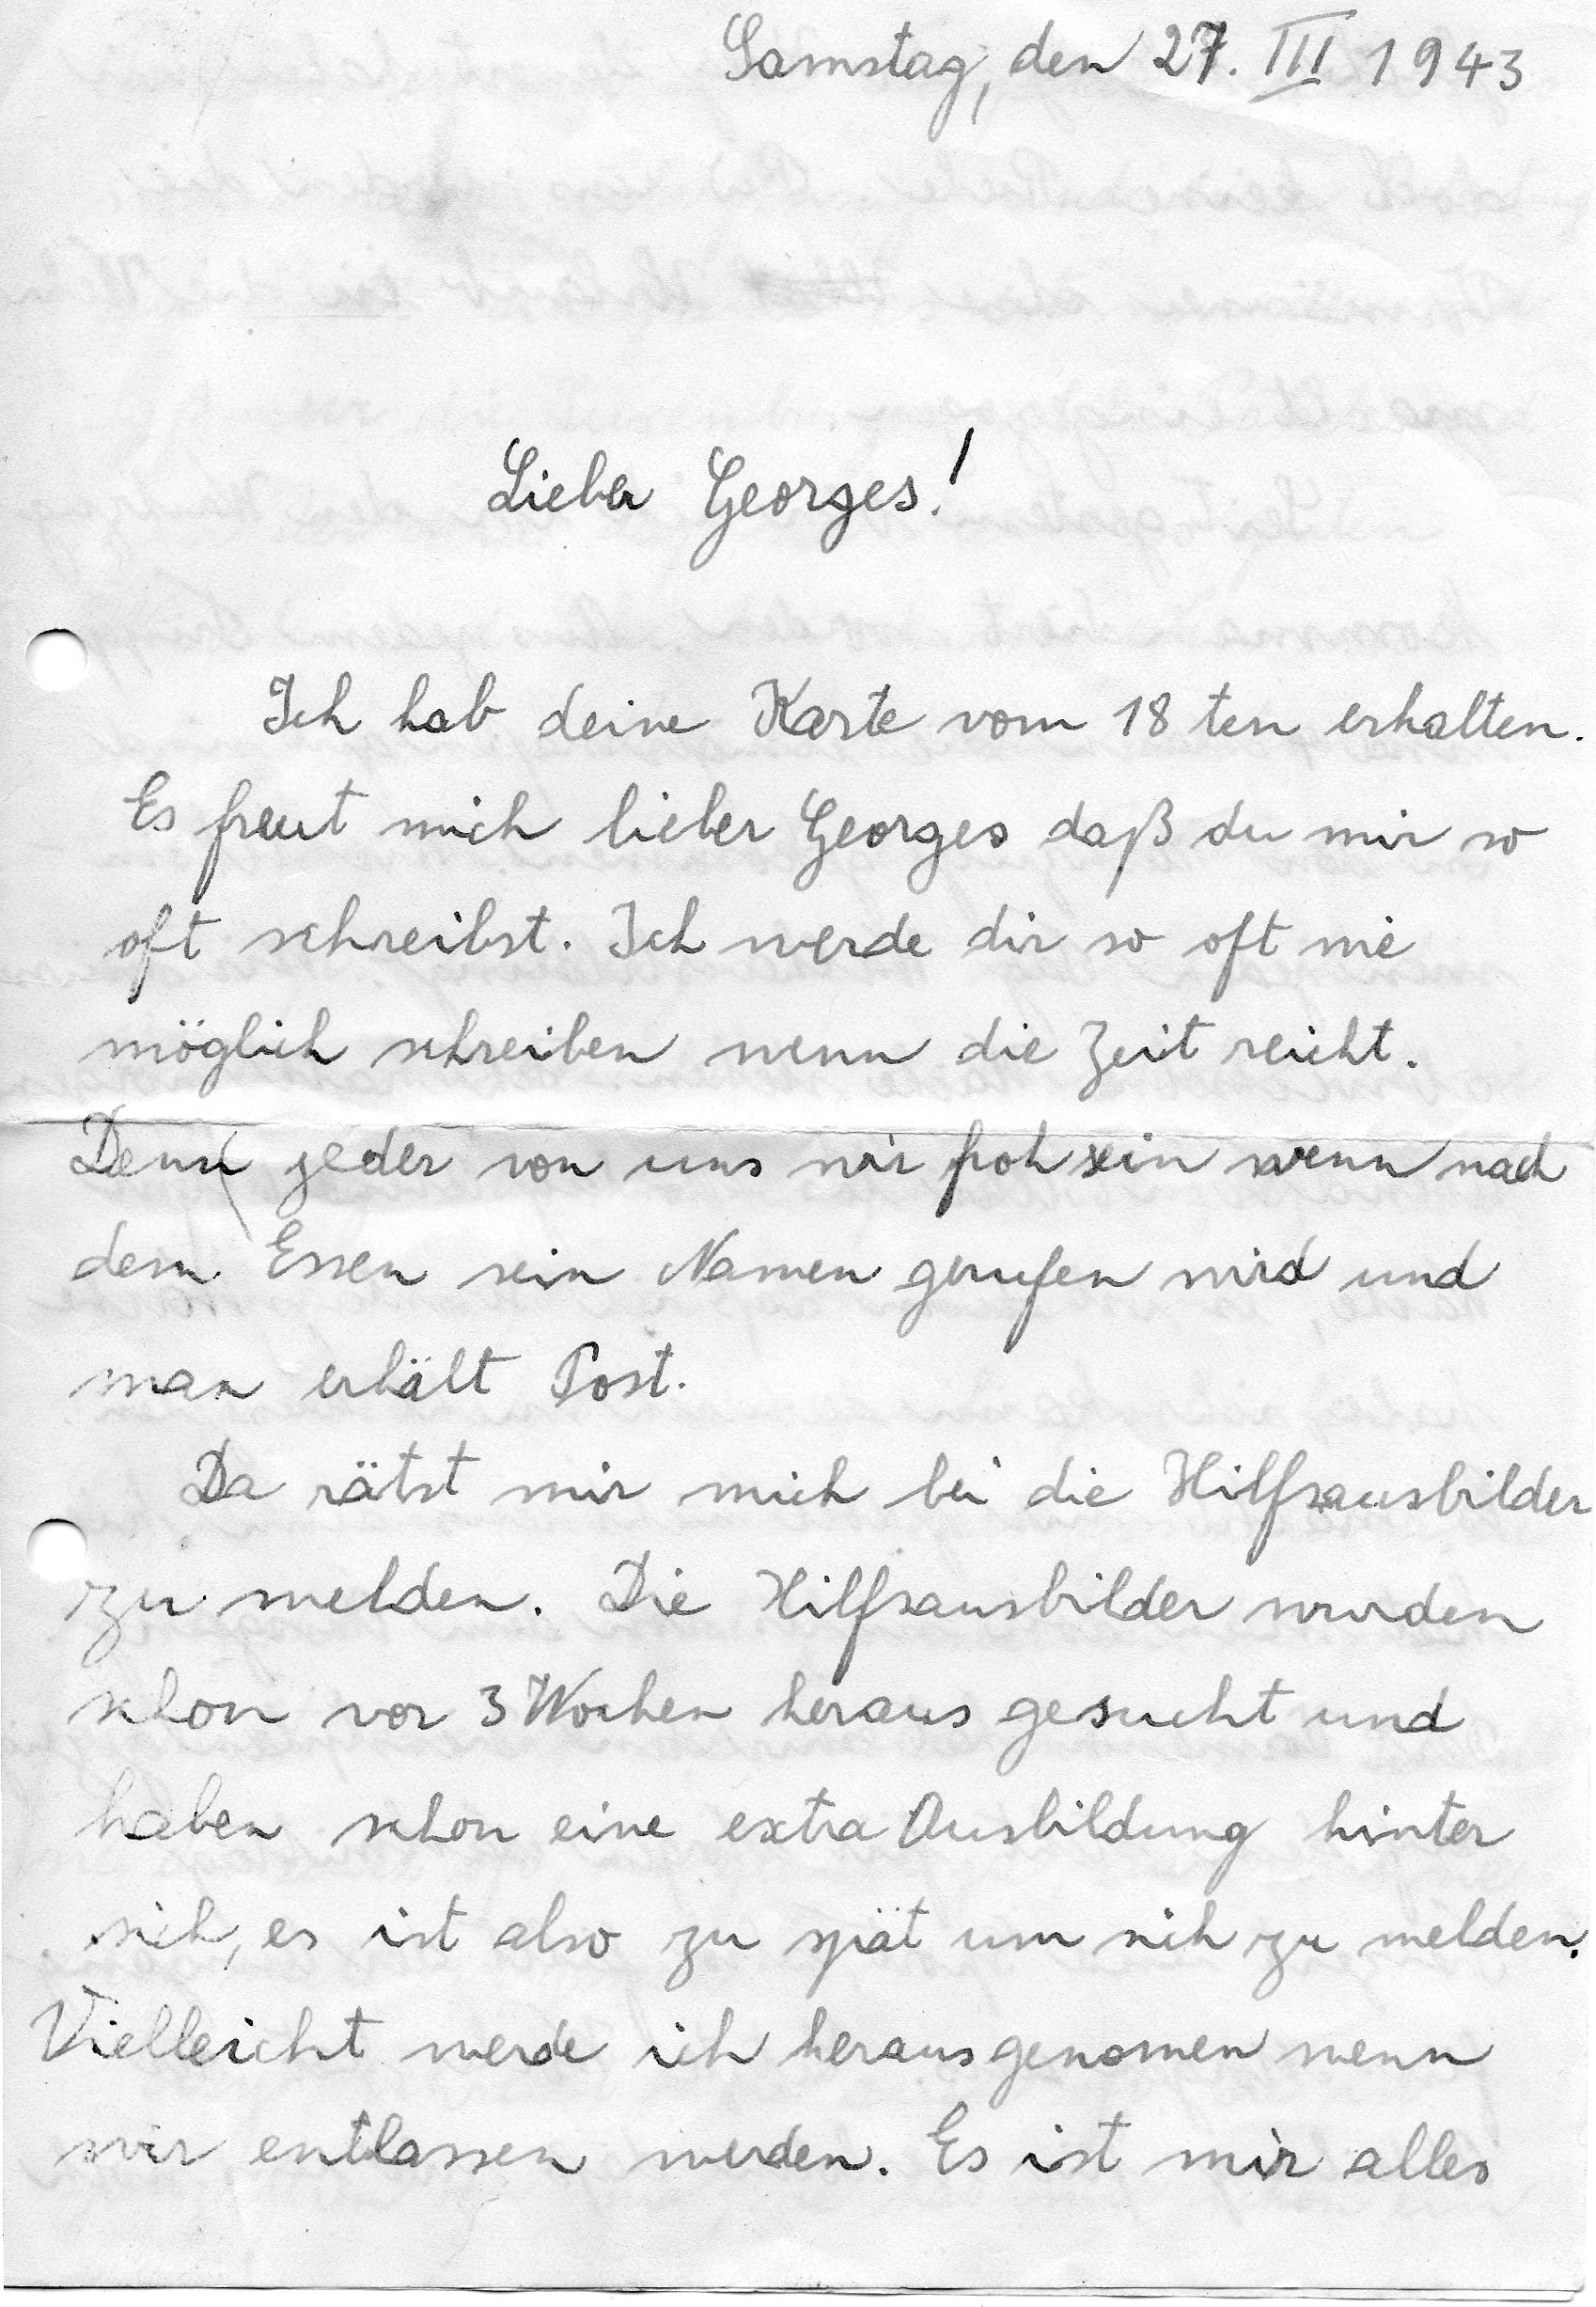 Samstag, den 27. III 1943
Lieber Georges!
Ich hab deine Karte vom 18 ten erhalten.
Es freut mich lieber Georges daß du mir so
oft schreibst. Ich werde dir so oft wie
möglich schreiben wenn die Zeit reicht.
Denn jeder von uns wir froh sein wenn nach
dem Essen sein Namen gerufen wird und
man erhält Post.
Da rätst mir mich bei die Hilfsausbilder
zu melden. Die Hilfsausbilder wurden
schon vor 3 Wochen heraus gesucht und
haben schon eine extra Ausbildung hinter
sich, es ist also zu spät um sich zu melden.
Vielleicht werde ich herausgenomen wenn
wir entlassen werden. Es ist mir alles